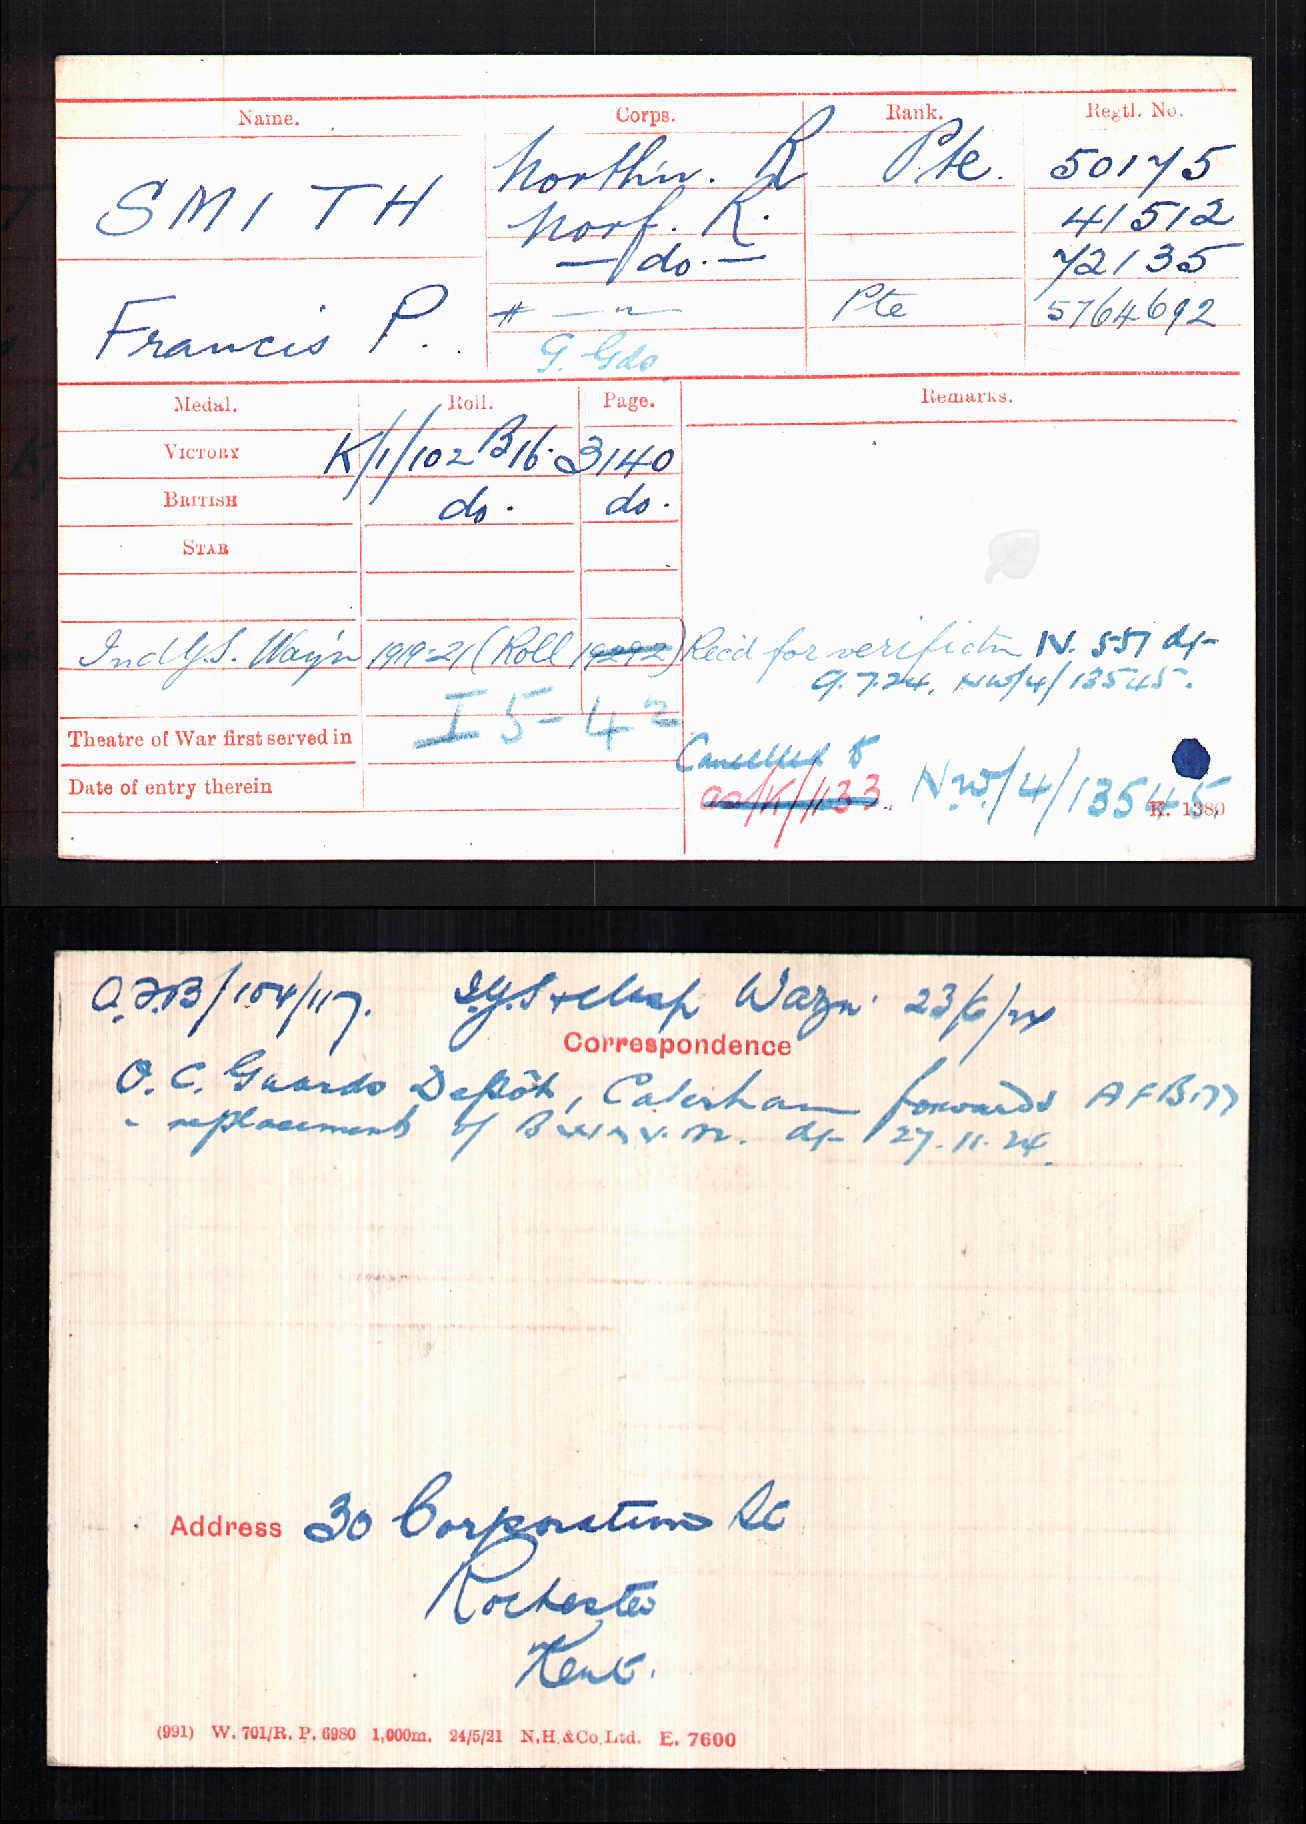 Name. Corps. Rank. Regtl. No.
SMITH
Francis P.
Northn. R Pte. 50175
Norf. R. 41512
— do. — 72135
# — " — Pte 5764692
G. Gds
Medal. Roll. Page. Remarks.
VICTORY K/1/102 B16. 3140
BRITISH do. do.
STAR
Ind G.S. Wazn 1919-21 (Roll 19292) Recd for verifictn N. 557 d/-
9.7.24. NW/4/13545.
I 5-42
Theatre of War first served in
Cancelled
Date of entry therein
/K/1133. N.W./4/13545
K. 1380
/104/117. I.G.S + clasp Wazn. 23/6/24
Correspondence
O. C. Guards Depôt, Caterham forwards AFB.
replacement of d/- 27.11.24.
Address 30 Corporation St
Rochester
Kent.
(991) W. 701/R. P. 6980 1,000m. 24/5/21 N.H.&Co.Ltd. E. 7600